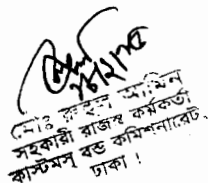 মোঃ রুহুল আমিন
সহকারী রাজস্ব কর্মকর্তা
কাস্টমস্ বন্ড কমিশনারেট,
ঢাকা ।